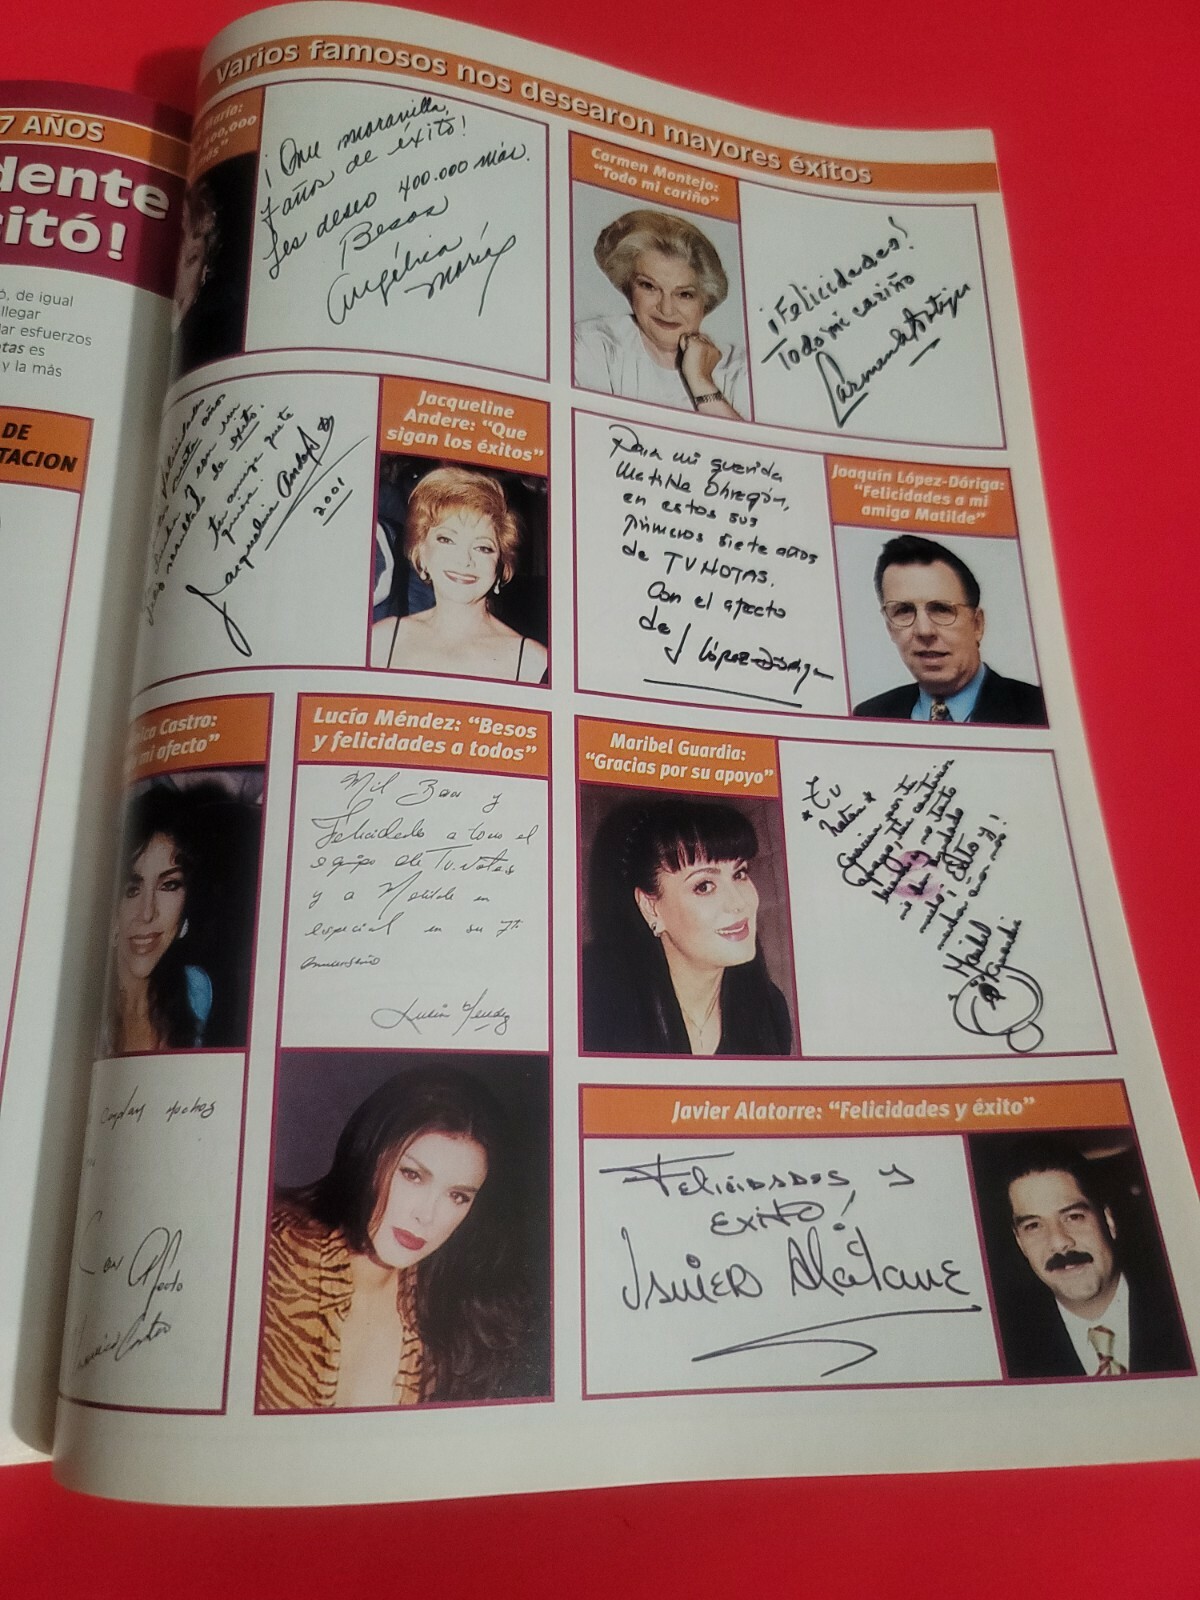 7 AÑOS
dente
itó!
ó, de igual
llegar
dar esfuerzos
otas es
y la más
DE
TACION
Varios famosos nos desearon mayores éxitos
María:
400,000
más"
¡Que maravilla,
7 años de éxito!
Les deseo 400.000 más.
Besos
Angélica
María
Carmen Montejo:
"Todo mi cariño"
¡Felicidades!
Todo mi cariño
Carmen Montejo
Felicidades
siete años
éxito.
tu amiga que te
quiere.
Jacqueline Andere
2001
Jacqueline
Andere: "Que
sigan los éxitos"
Para mi querida
Matilde Obregón,
en estos sus
primeros siete años
de TVNOTAS.
Con el afecto
de J López-Dóriga
Joaquín López-Dóriga:
"Felicidades a mi
amiga Matilde"
ica Castro:
mi afecto"
muchos
Con Afecto
Verónica Castro
Lucía Méndez: "Besos
y felicidades a todos"
Mil Besos y
Felicidades a todo el
equipo de Tv.notas
y a Matilde en
especial en su 7º
aniversario
Lucía Méndez
Maribel Guardia:
"Gracias por su apoyo"
*TV
Notas*
Gracias por tu
apoyo, tu
Maribel
Guardia
Javier Alatorre: "Felicidades y éxito"
Felicidades y
Exito!
Javier Alatorre